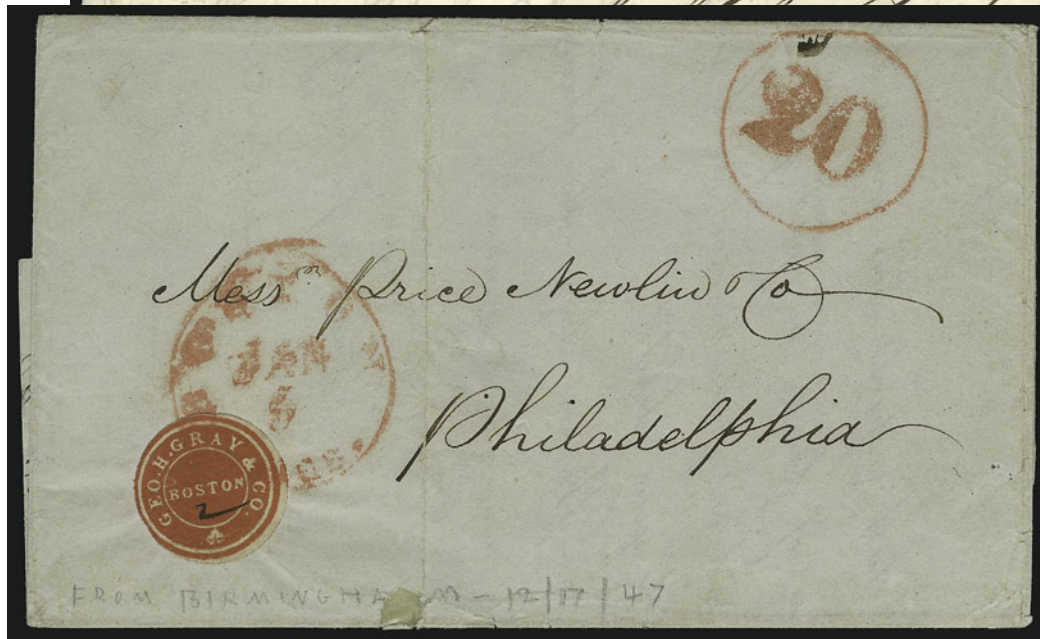 20
Mess^rs Price Newlin & Co
JAN
5
Philadelphia
GEO. H. GRAY & CO.
BOSTON
2
FROM BIRMINGHAM - 12/17/47